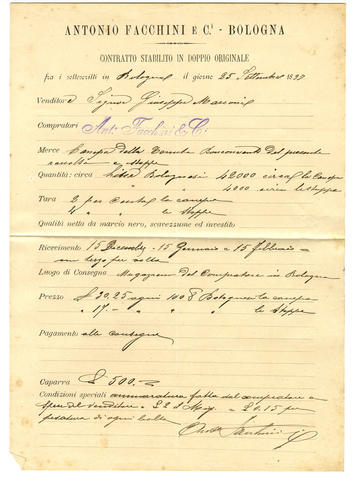 ANTONIO FACCHINI E C.i - BOLOGNA
CONTRATTO STABILITO IN DOPPIO ORIGINALE
fra i sottoscritti in Bologna il giorno 25 Settembre 189
Venditore Signor Giuseppe
Compratori Ant. Facchini & C.
Merce Canepa della Tenuta del presente
raccolto e stoppe
Quantità: circa Libre Bolognesi 42000 circa la Canepa
4000 circa le stoppe
Tara 2 per la canepa
4 " le stoppe
Qualità netta da marcio nero, scavezzume ed investito
Ricevimento 15 Dicembre - 15 Gennaio e 15 febbraio -
un terzo per volta
Luogo di Consegna Magazeni del Compratore in Bologna
Prezzo £ 20,25 ogni 100 Bolognesi la canepa
" 17.- " " le stoppe
Pagamento alle consegne
Caparra £ 500.-
Condizioni speciali fatta dal compratore a
spese del venditore a £ 2 £ 0.15 per
pesatura di ogni balla